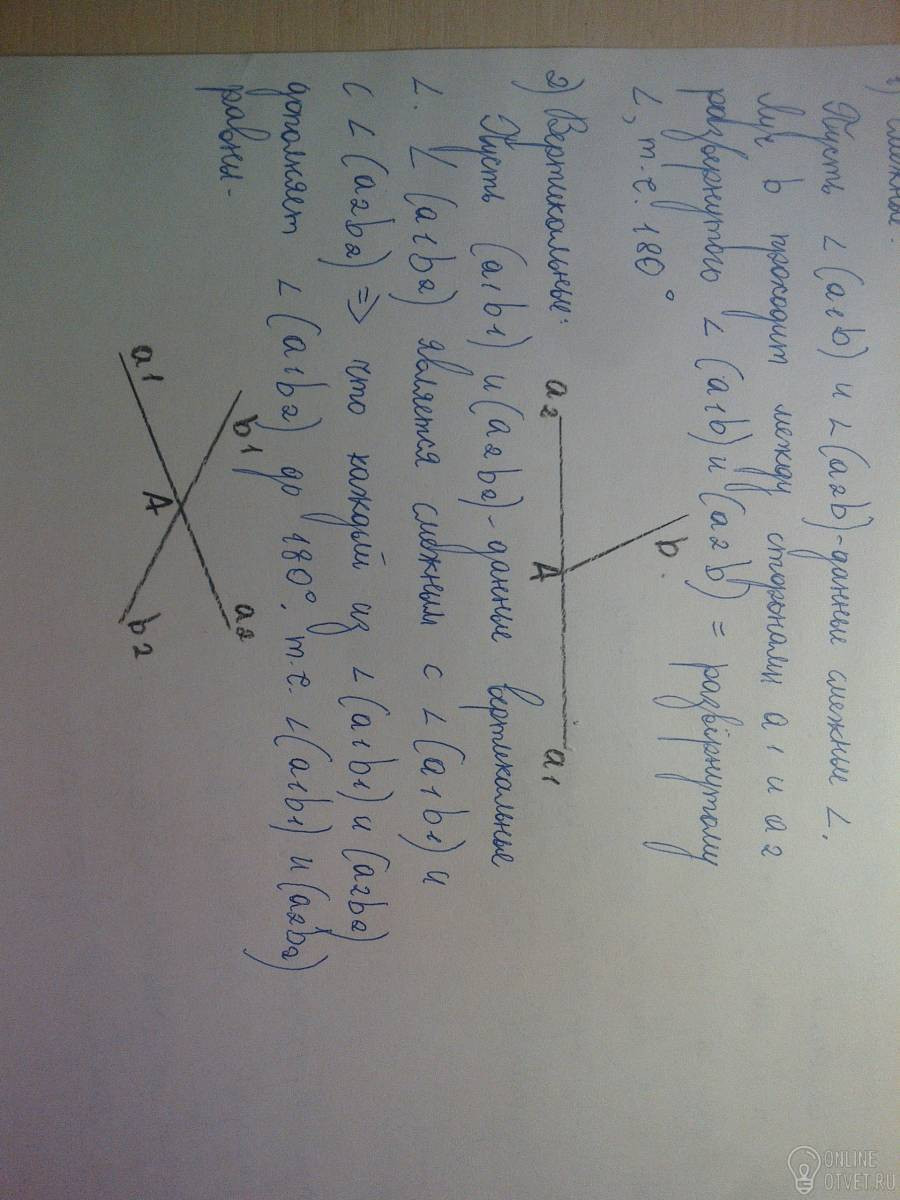 1) Смежные.
Пусть ∠(a1b) и ∠(a2b)-данные смежные ∠.
Луч b проходит между сторонами a1 и a2
развернутого ∠(a1b) и (a2b) = развірнутому
∠, т.е. 180°
b
a2 A a1
2) Вертикальные:
Пусть (a1b1) и (a2b2)-данные вертикальные
∠. ∠(a1b2) является смежным с ∠(a1b1) и
с ∠(a2b2) => что каждый из ∠(a1b1) и (a2b2)
дополняет ∠(a1b2) до 180°. т.е. ∠(a1b1) и (a2b2)
равны.
b1 a2
a1 A b2
ONLINE
OTVET.RU